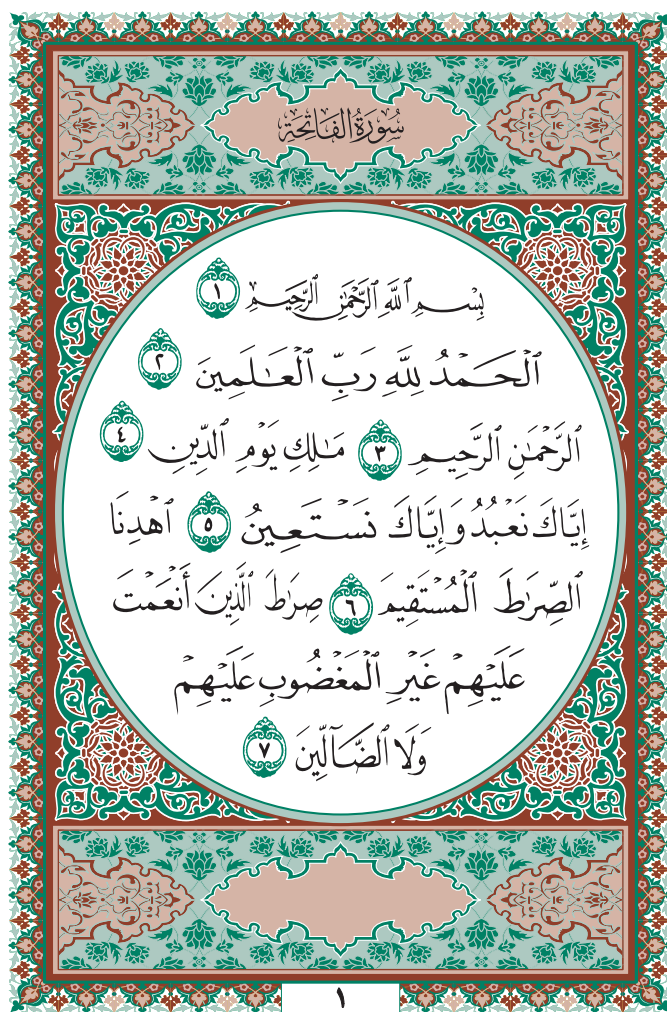 سُورَةُ الفَاتِحَة
بِسْمِ ٱللَّهِ ٱلرَّحْمَٰنِ ٱلرَّحِيمِ ١
ٱلْحَمْدُ لِلَّهِ رَبِّ ٱلْعَٰلَمِينَ ٢
ٱلرَّحْمَٰنِ ٱلرَّحِيمِ ٣ مَٰلِكِ يَوْمِ ٱلدِّينِ ٤
إِيَّاكَ نَعْبُدُ وَإِيَّاكَ نَسْتَعِينُ ٥ ٱهْدِنَا
ٱلصِّرَٰطَ ٱلْمُسْتَقِيمَ ٦ صِرَٰطَ ٱلَّذِينَ أَنْعَمْتَ
عَلَيْهِمْ غَيْرِ ٱلْمَغْضُوبِ عَلَيْهِمْ
وَلَا ٱلضَّآلِّينَ ٧
١